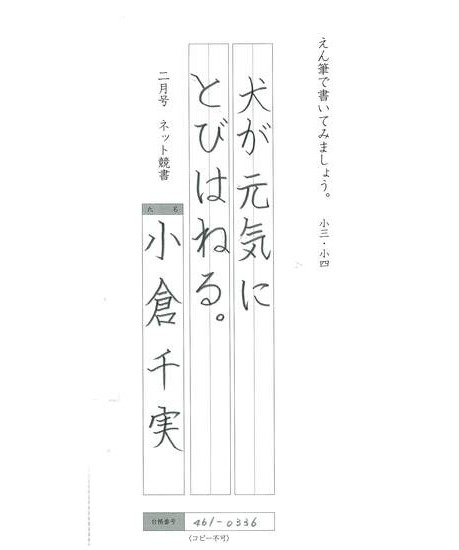 えん筆で書いてみましょう。 小三・小四
犬が元気に
とびはねる。
二月号 ネット競書
氏 名
小倉千実
台帳番号 461-0336
(コピー不可)